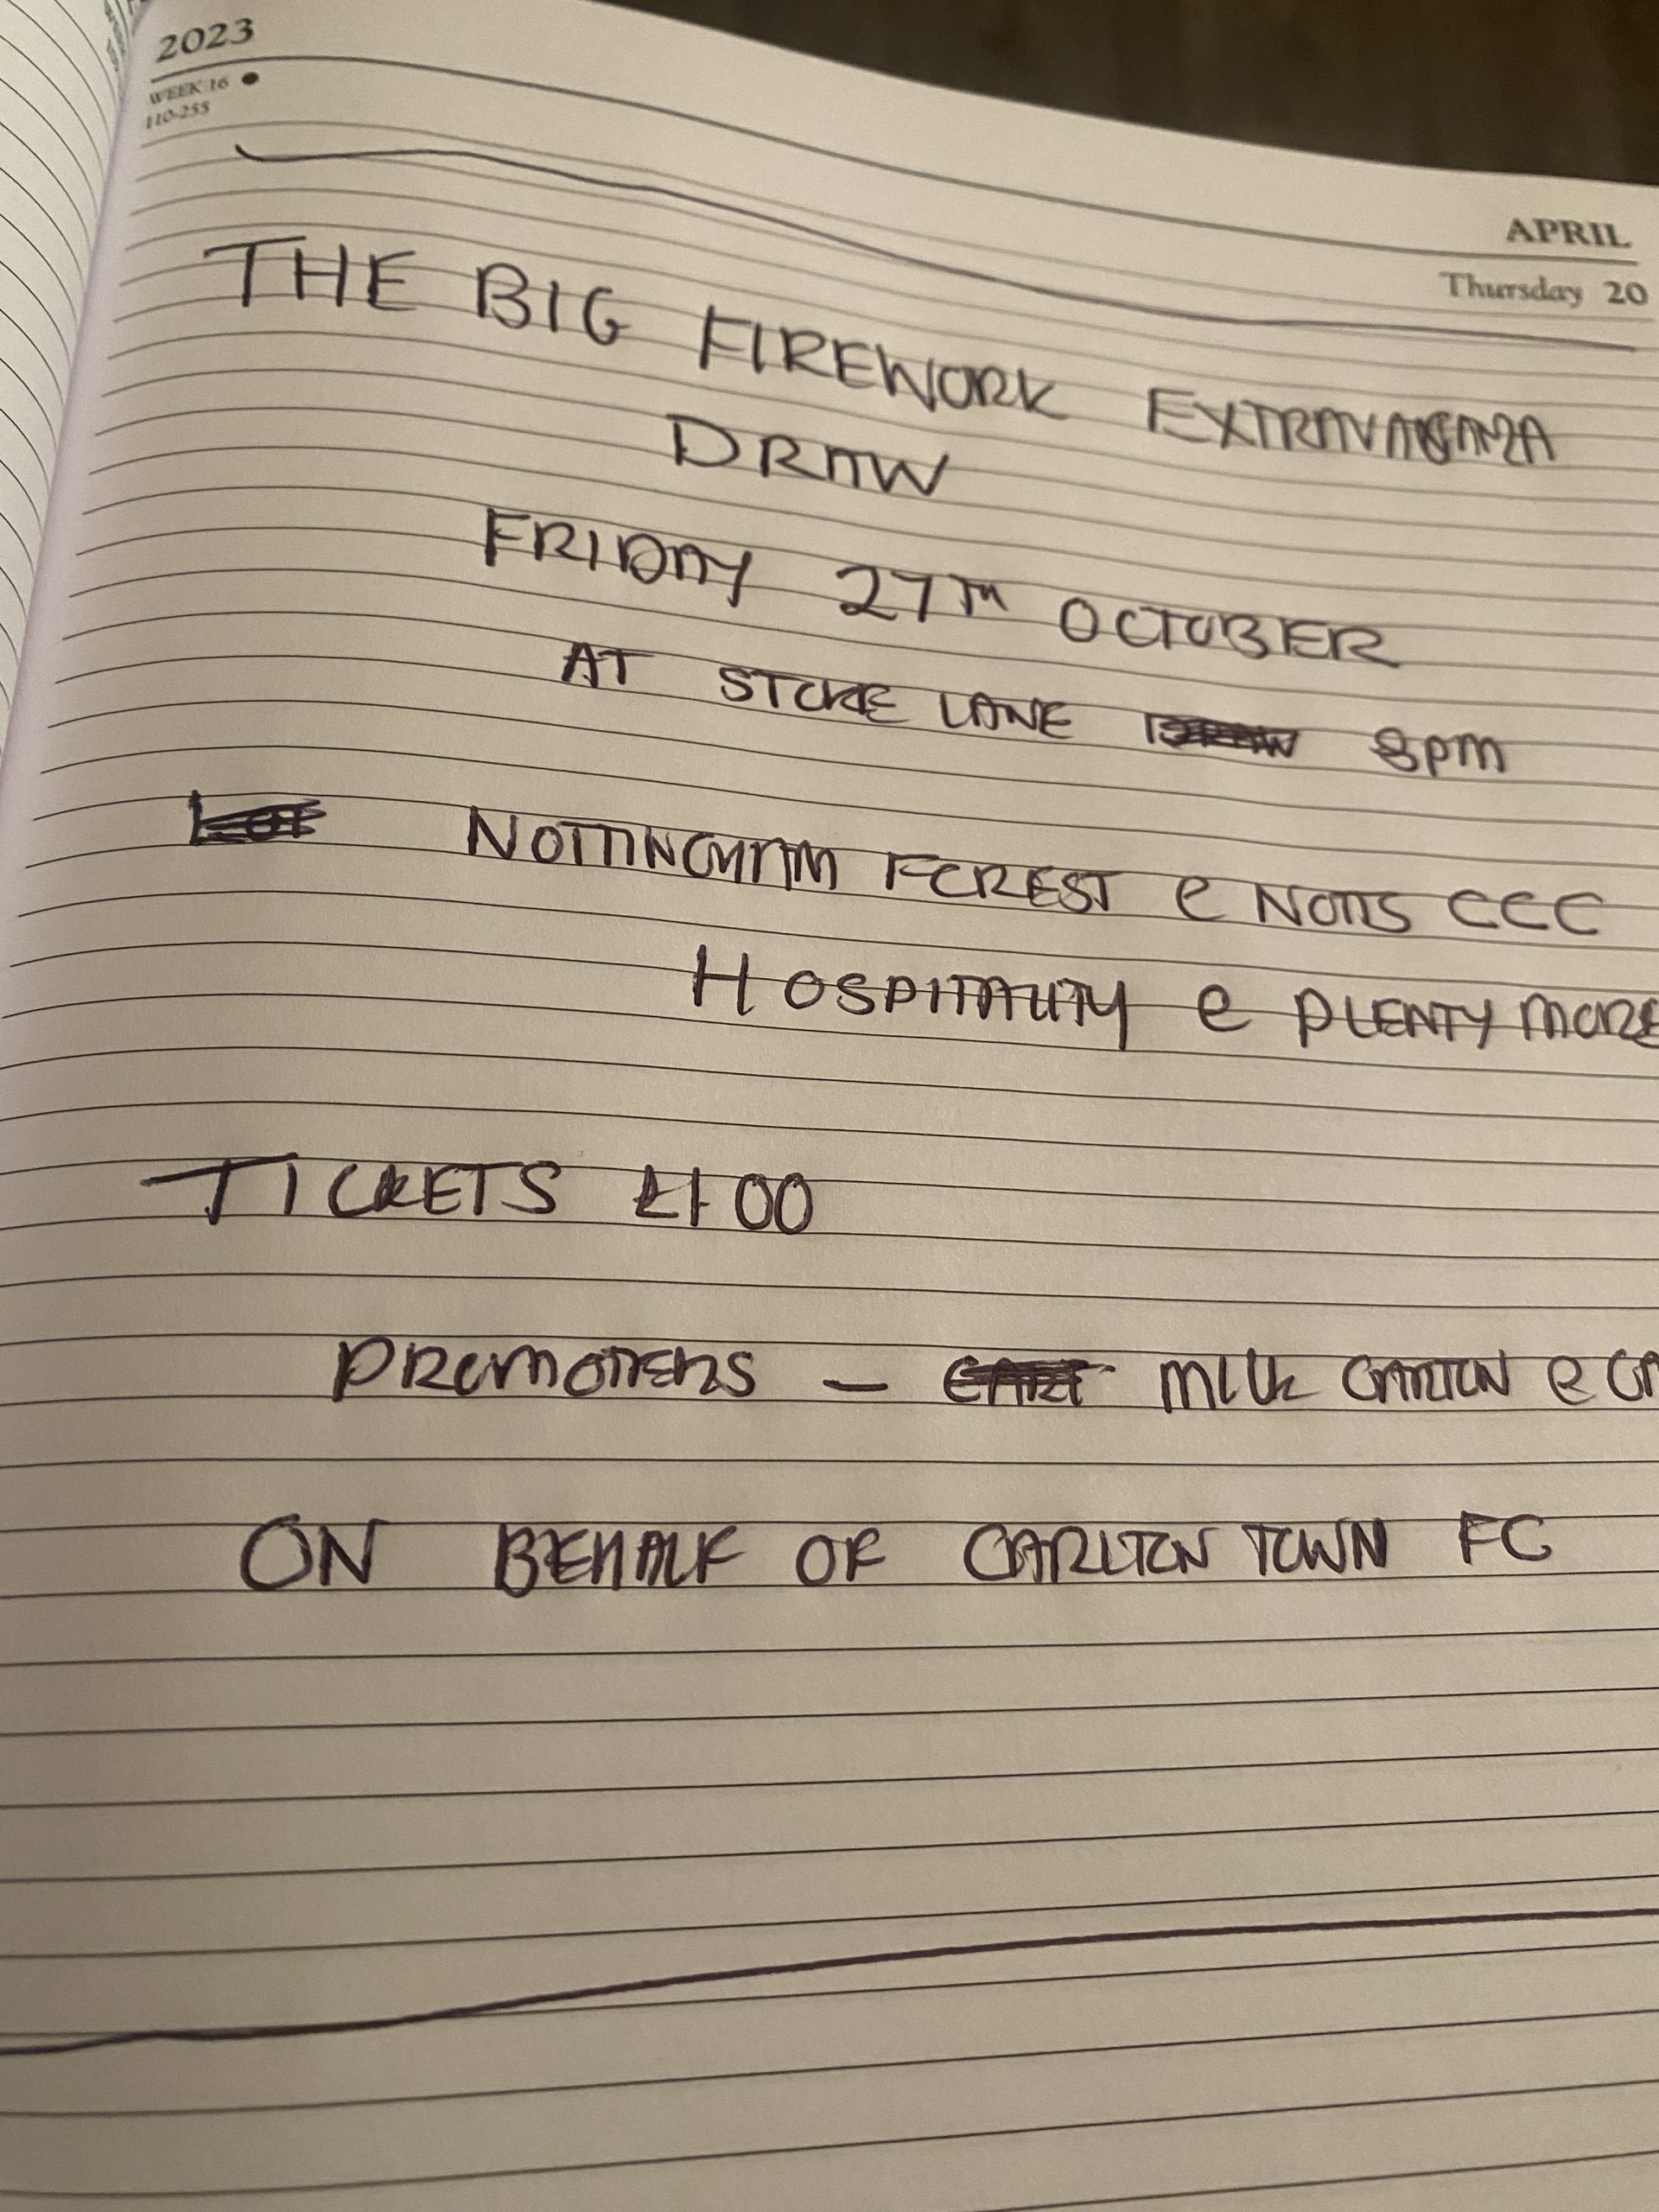 2023
WEEK 16
110-255
APRIL
Thursday 20
THE BIG FIREWORK EXTRAVAGANZA
DRAW
FRIDAY 27TH OCTOBER
AT STOKE LANE 8PM
NOTTINGHAM FOREST & NOTTS CCC
HOSPITALITY & PLENTY MORE
TICKETS £1 00
PROMOTERS - MILK CARTON &
ON BEHALF OF CARLTON TOWN FC